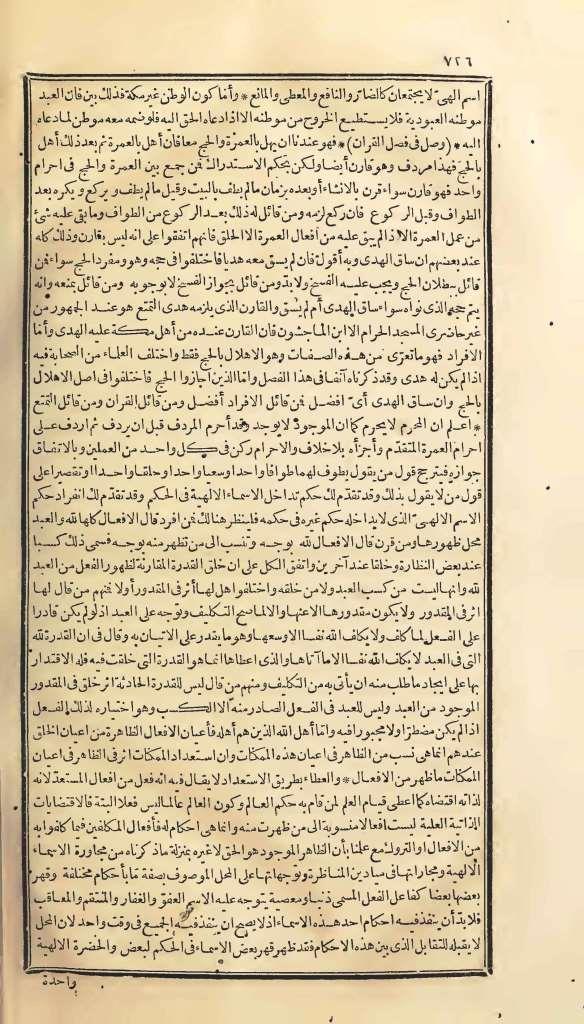 ٧٢٦
اسم الهىّ لا يجتمعان كالضارّ والنافع والمعطى والمانع * وأمّا كون الوطن غير مكة فذلك بين فان العبد
موطنه العبودية فلا يستطيع الخروج من موطنه الا اذا دعاه الحق اليه فلو ضمه معه موطن لما دعاه
اليه * (وصل فى فصل القران) * فهو عندنا ان يهل بالعمرة والحج معا فان أهل بالعمرة ثم بعد ذلك أهل
بالحج فهذا مردف وهو قارن أيضا ولكن بحكم الاستدراك فمن جمع بين العمرة والحج فى احرام
واحد فهو قارن سواء قرن بالانشاء أو بعده بزمان ما لم يطف بالبيت وقيل ما لم يطف ويركع ويكره بعد
الطواف وقبل الركوع فان ركع لزمه ومن قائل له ذلك بعد الركوع من الطواف وما بقى عليه شئ
من عمل العمرة الا اذا لم يبق عليه من أفعال العمرة الا الحلق فانهم اتفقوا على انه ليس بقارن وذلك كله
عند بعضهم ان ساق الهدى وبه أقول فان لم يسق معه هديا فاختلفوا فى حجه وهو ومفرد الحج سواء فمن
قائل ببطلان الحج ويجب عليه الفسخ ولا بدّ ومن قائل بجواز الفسخ لا بوجوبه ومن قائل بمنعه وانه
يتم حجه الذى نواه سواء ساق الهدى أم لم يسق والقارن الذى يلزمه هدى التمتع هو عند الجمهور من
غير حاضرى المسجد الحرام الا ابن الماجشون فان القارن عنده من أهل مكة عليه الهدى وأمّا
الافراد فهو ما تعرّى من هذه الصفات وهو الاهلال بالحج فقط واختلف العلماء من الصحابة فيه
اذا لم يكن له هدى وقد ذكرناه آنفا فى هذا الفصل وامّا الذين أجازوا الحج فاختلفوا فى اصل الاهلال
بالحج وان ساق الهدى أىّ افضل فمن قائل الافراد أفضل ومن قائل القران ومن قائل التمتع
* اعلم ان المحرم لا يحرم كما ان الموجود لا يوجد وقد أحرم المردف قبل ان يردف ثم اردف على
احرام العمرة المتقدّم وأجزأه بلا خلاف والاحرام ركن فى كل واحد من العملين وبالاتفاق
جوازه فيترجح قول من يقول يطوف لهما طوافا واحدا وسعيا واحدا وحلقا واحدا أو تقصيرا على
قول من لا يقول بذلك وقد تقدّم لك حكم تداخل الاسماء الالهية فى الحكم وقد تقدّم لك انفراد حكم
الاسم الالهىّ الذى لا يداخله حكم غيره فى حكمه فلينظر هنالك فمن افرد قال الافعال كلها لله والعبد
محل ظهورها ومن قرن قال الافعال لله بوجه وتنسب الى من تظهر منه بوجه فسمى ذلك كسبا
عند بعض النظار وخلقا عند آخرين واتفق الكل على ان خلق القدرة المقارنة لظهور الفعل من العبد
لله وانها ليست من كسب العبد ولا من خلقه واختلفوا هل لها أثر فى المقدور أو لا فمنهم من قال لها
اثر فى المقدور ولا يكون مقدورها الا عنها والا ما صح التكليف وتوجه على العبد اذ لو لم يكن قادرا
على الفعل لما كلف ولا يكلف الله نفسا الا وسعها وهو ما يقدر على الاتيان به وقال فى ان القدرة لله
التى فى العبد لا يكلف الله نفسا الا ما آتاها والذى اعطاها انما هو القدرة التى خلقت فيه فله الاقتدار
بها على ايجاد ما طلب منه ان يأتى به من التكليف ومنهم من قال ليس للقدرة الحادثة اثر خلق فى المقدور
الموجود من العبد وليس للعبد فى الفعل الصادر منه الا الكسب وهو اختياره لذلك الفعل
اذا لم يكن مضطرا ولا مجبورا فيه وامّا أهل الله الذين هم أهله فأعيان الافعال الظاهرة من اعيان الخلق
عندهم انما هى نسب من الظاهر فى اعيان هذه الممكنات وان استعداد الممكنات اثر فى الظاهر فى اعيان
الممكنات ما ظهر من الافعال * والعطاء بطريق الاستعداد لا يقال فيه انه فعل من افعال المستعدّ لانه
لذاته اقتضاه كما اعطى قيام العلم لمن قام به حكم العالم وكون العالم عالما ليس فعلا البتة فالاقتضاءات
الذاتية العلمية ليست افعالا منسوبة الى من ظهرت منه وانما هى احكام له فأفعال المكلفين فيما كلفوا به
من الافعال أو التروك مع علمنا بأن الظاهر الموجود هو الحق لا غيره بمنزلة ما ذكرناه من محاورة الاسماء
الالهية ومجاراتها فى ميادين المناظرة وتوجهاتها على المحل الموصوف بصفة مّا بأحكام مختلفة وقهر
بعضها بعضا كفاعل الفعل المسمى ذنبا ومعصية يتوجه عليه الاسم العفوّ والغفار والمنتقم والمعاقب
فلا بدّ أن ينفذ فيه احكام احد هذه الاسماء اذ لا يصح ان ينفذ فيه الجميع فى وقت واحد لان المحل
لا يقبله للتقابل الذى بين هذه الاحكام فقد ظهر قهر بعض الاسماء فى الحكم لبعض والحضرة الالهية
واحدة